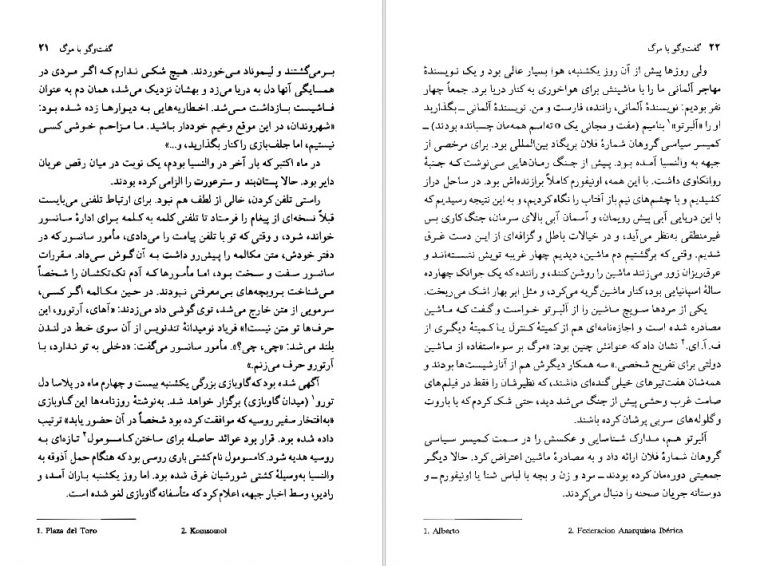 گفت‌وگو با مرگ ۲۱
برمی‌گشتند و لیموناد می‌خوردند. هیچ شکی ندارم که اگر مردی در
همسایگی آنها دل به دریا می‌زد و بهشان نزدیک می‌شد، همان دم به عنوان
فاشیست بازداشت می‌شد. اخطاریه‌هایی به دیوارها زده شده بود:
«شهروندان، در این موقع وخیم خوددار باشید. ما مزاحم خوشی کسی
نیستیم، اما جلف‌بازی را کنار بگذارید، و...»
در ماه اکتبر که بار آخر در والنسیا بودم، یک نوبت در میان رقص عریان
دایر بود. حالا پستان‌بند و سترعورت را الزامی کرده بودند.
راستی تلفن کردن، خالی از لطف هم نبود. برای ارتباط تلفنی می‌بایست
قبلاً نسخه‌ای از پیغام را فرستاد تا تلفنی کلمه به کلمه برای ادارهٔ سانسور
خوانده شود، و وقتی که تو با تلفن پیامت را می‌دادی، مأمور سانسور که در
دفتر خودش، متن مکالمه را پیش‌رو داشت به آن گوش می‌داد. مقررات
سانسور سفت و سخت بود، اما مأمورها که آدم تک‌تکشان را شخصاً
می‌شناخت بروبچه‌های بی‌معرفتی نبودند. در حین مکالمه اگر کسی،
سرمویی از متن خارج می‌شد، توی گوشی داد می‌زدند: «آهای، آرتورو، این
حرف‌ها تو متن نیست!» فریاد نومیدانهٔ تندنویس از آن سوی خط در لندن
بلند می‌شد: «چی، چی؟». مأمور سانسور می‌گفت: «دخلی به تو ندارد، با
آرتورو حرف می‌زنم.»
آگهی شده بود که گاوبازی بزرگی یکشنبه بیست و چهارم ماه در پلاسا دل
تورو۱ (میدان گاوبازی) برگزار خواهد شد. به‌نوشتهٔ روزنامه‌ها این گاوبازی
«به‌افتخار سفیر روسیه که موافقت کرده بود شخصاً در آن حضور یابد» ترتیب
داده شده بود. قرار بود عوائد حاصله برای ساختن کامسومول۲ تازه‌ای به
روسیه هدیه شود. کامسومول نام کشتی باری روسی بود که هنگام حمل آذوقه به
والنسیا به‌وسیلهٔ کشتی شورشیان غرق شده بود. اما روز یکشنبه باران آمد، و
رادیو، وسط اخبار جبهه، اعلام کرد که متأسفانه گاوبازی لغو شده است.
1. Plaza del Toro 2. Komsomol
۲۲ گفت‌وگو با مرگ
ولی روزها پیش از آن روز یکشنبه، هوا بسیار عالی بود و یک نویسندهٔ
مهاجر آلمانی ما را با ماشینش برای هواخوری به کنار دریا برد. جمعاً چهار
نفر بودیم: نویسندهٔ آلمانی، راننده، فارست و من. نویسندهٔ آلمانی ـ بگذارید
او را «آلبرتو»۱ بنامیم (مفت و مجانی یک o ته‌اسم همه‌مان چسبانده بودند) ـ
کمیسر سیاسی گروهان شمارهٔ فلان بریگاد بین‌المللی بود. برای مرخصی از
جبهه به والنسیا آمده بود. پیش از جنگ رمان‌هایی می‌نوشت که جنبهٔ
روانکاوی داشت. با این همه، اونیفورم کاملاً برازنده‌اش بود. در ساحل دراز
کشیدیم و با چشم‌های نیم باز آفتاب را نگاه کردیم، و به این نتیجه رسیدیم که
با این دریایی آبی پیش رویمان، و آسمان آبی بالای سرمان، جنگ کاری بس
غیرمنطقی به‌نظر می‌آید، و در خیالات باطل و گزافه‌ای از این دست غرق
شدیم. وقتی که برگشتیم دم ماشین، دیدیم چهار غریبه تویش نشسته‌اند و
عرق‌ریزان زور می‌زنند ماشین را روشن کنند، و راننده که یک جوانک چهارده
سالهٔ اسپانیایی بود، کنار ماشین گریه می‌کرد، و مثل ابر بهار اشک می‌ریخت.
یکی از مردها سویچ ماشین را از آلبرتو خواست و گفت که ماشین
مصادره شده است و اجازه‌نامه‌ای هم از کمیتهٔ کنترل یا کمیتهٔ دیگری از
ف.آ.ای.۲ نشان داد که عنوانش چنین بود: «مرگ بر سوءاستفاده از ماشین
دولتی برای تفریح شخصی.» سه همکار دیگرش هم از آنارشیست‌ها بودند و
همه‌شان هفت‌تیرهای خیلی گنده‌ای داشتند، که نظیرشان را فقط در فیلم‌های
صامت غرب وحشی پیش از جنگ می‌شد دید، حتی شک کردم که با باروت
و گلوله‌های سربی پرشان کرده باشند.
آلبرتو هم، مدارک شناسایی و عکسش را در سمت کمیسر سیاسی
گروهان شمارهٔ فلان ارائه داد و به مصادرهٔ ماشین اعتراض کرد. حالا دیگر
جمعیتی دوره‌مان کرده بودند ـ مرد و زن و بچه با لباس شنا یا اونیفورم ـ و
دوستانه جریان صحنه را دنبال می‌کردند.
1. Alberto 2. Federacion Anarquista Ibérica